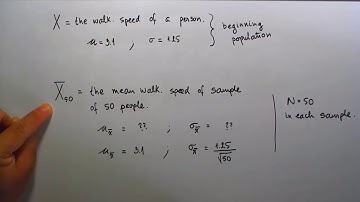 X = the walk. speed of a person.
μ = 3.1 , σ = 1.25
} beginning
population
X̄₅₀ = the mean walk. speed of sample
of 50 people.
μx̄ = ?? ; σx̄ = ??
μx̄ = 3.1 ; σx̄ = 1.25/√50
N = 50
in each sample.